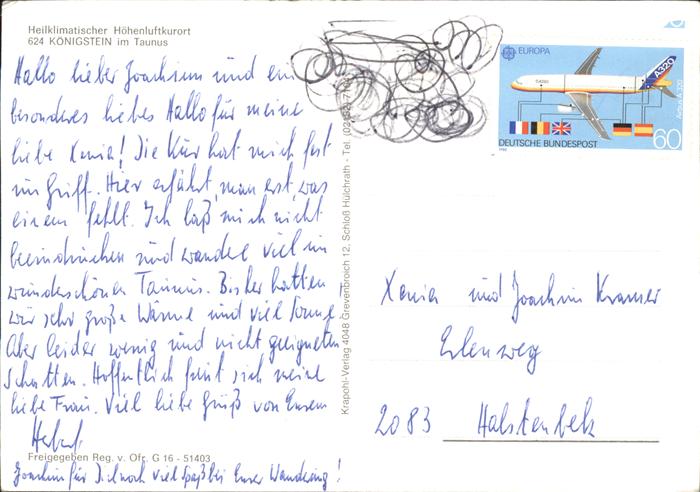 Heilklimatischer Höhenluftkurort
624 KÖNIGSTEIN im Taunus
Hallo lieber Joachim und ein
besonderes liebes Hallo für meine
liebe Xenia! Die Kur hat mich fest
im Griff. Hier erfährt man erst, was
einem fehlt. Ich laß mich nicht
beeindrucken und wandle viel im
wunderschönen Taunus. Bisher hatten
wir sehr große Wärme und viel Sonne
Aber leider wenig und nicht geeigneten
Schatten. Hoffentlich freut sich meine
liebe Frau. Viel liebe Grüß von Eurem
Herbert
Freigegeben Reg. v. Ofr. G 16 - 51403
Joachim für Dich noch viel Spaß bei Eurer Wanderung!
Krapohl-Verlag 4048 Grevenbroich 12, Schloß Hülchrath - Tel.
EUROPA
A320
Airbus A 320
DEUTSCHE BUNDESPOST
60
Xenia und Joachim Kramer
Erlenweg
2083 Halstenbek